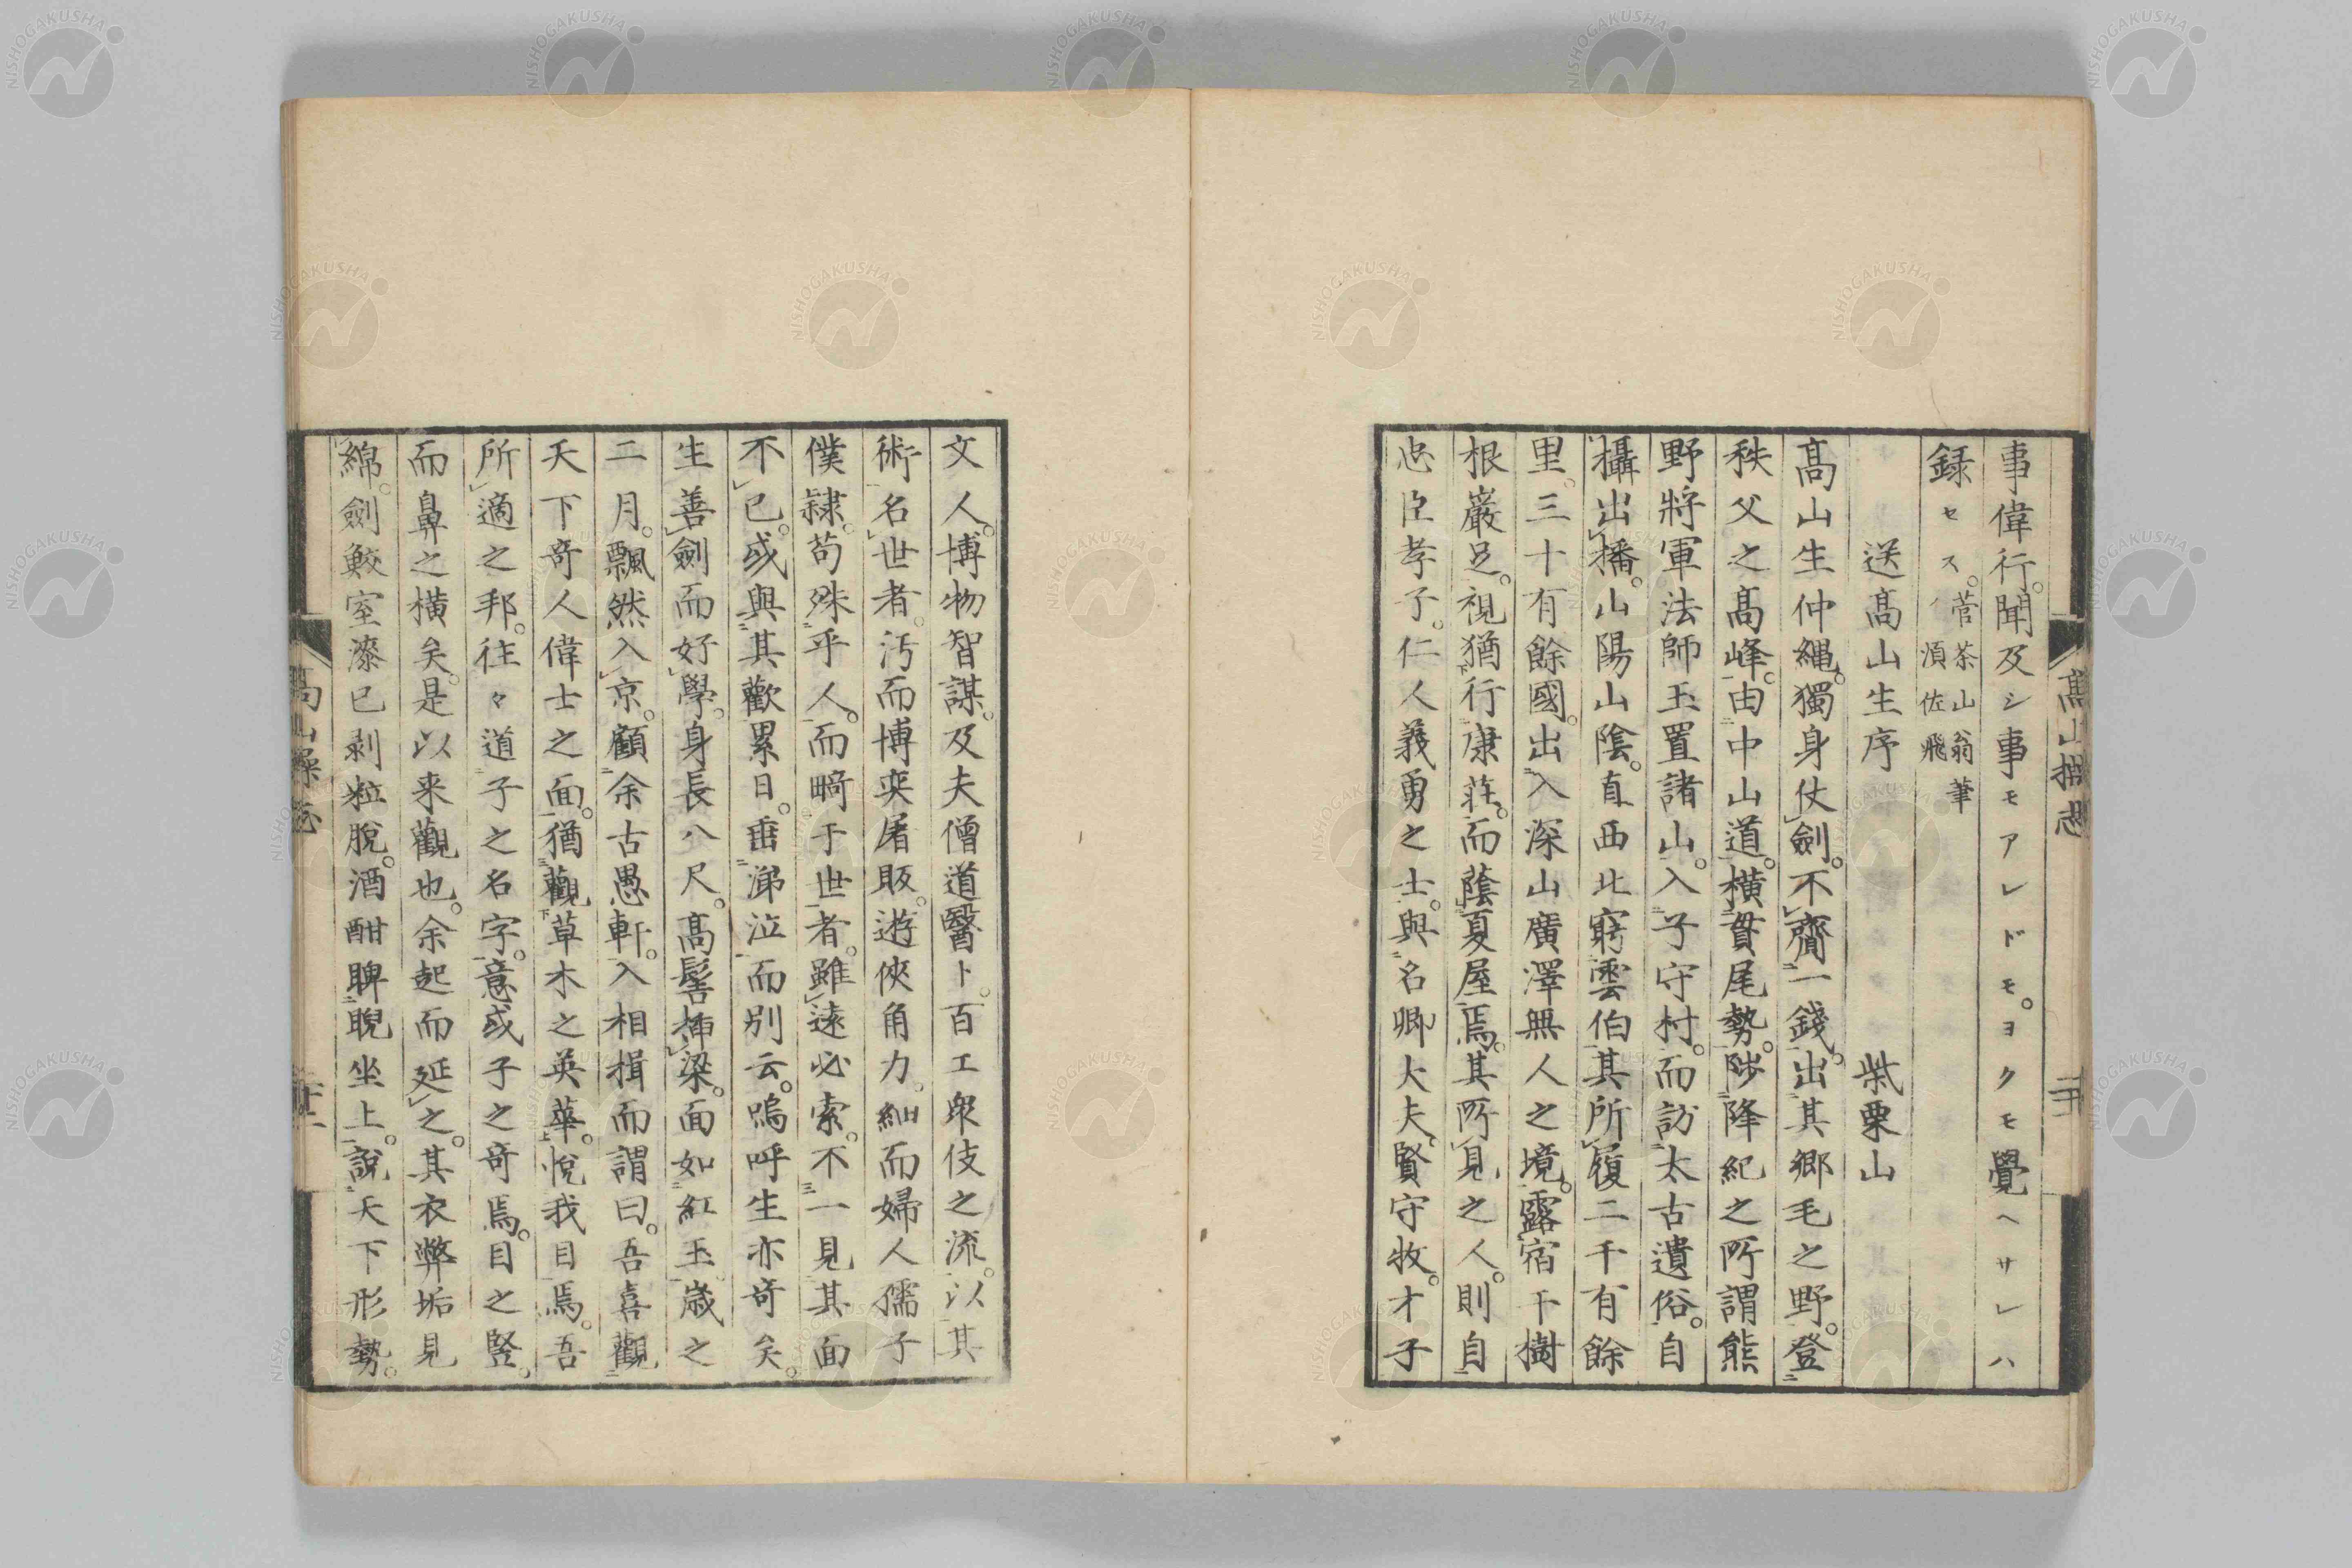 事偉行。聞及シ事モアレドモ。ヨクモ覺ヘサレハ
録セス。菅茶山翁筆
須佐飛
送髙山生序　　柴栗山
髙山生仲縄。獨身仗劍。不齎一錢。出其郷毛之野。登
秩父之髙峰。由中山道。橫貫尾勢。陟降紀之所謂熊
野將軍法師玉置諸山。入子守村。而訪太古遺俗。自
攝出播。山陽山陰。直西北窮雲伯。其所履二千有餘
里。三十有餘國。出入深山廣澤無人之境。露宿于樹
根巖足。視猶行康莊。而蔭夏屋焉。其所見之人。則自
忠臣孝子。仁人義勇之士。與名卿大夫。賢守牧。才子
文人。博物智謀。及夫僧道醫卜。百工衆伎之流。以其
術名世者。汚而博奕屠販。遊俠角力。細而婦人孺子
僕隷。苟殊乎人。而畸于世者。雖遠必索。不一見其面
不已。或與其歡累日。垂涕泣而別云。嗚呼生亦奇矣。
生善劍而好學。身長八尺。髙髻挿梁。面如紅玉。歳之
二月。飄然入京。顧余古愚軒。入相揖而謂曰。吾喜觀
天下奇人偉士之面。猶觀草木之英華。悅我目焉。吾
所適之邦。往々道子之名字。意或子之奇焉。目之竪。
而鼻之橫矣。是以来觀也。余起而延之。其衣弊垢見
綿。劍鮫室漆已剥粒脫。酒酣睥睨坐上。說天下形勢。
髙山操志
廾一
髙山操志
二十